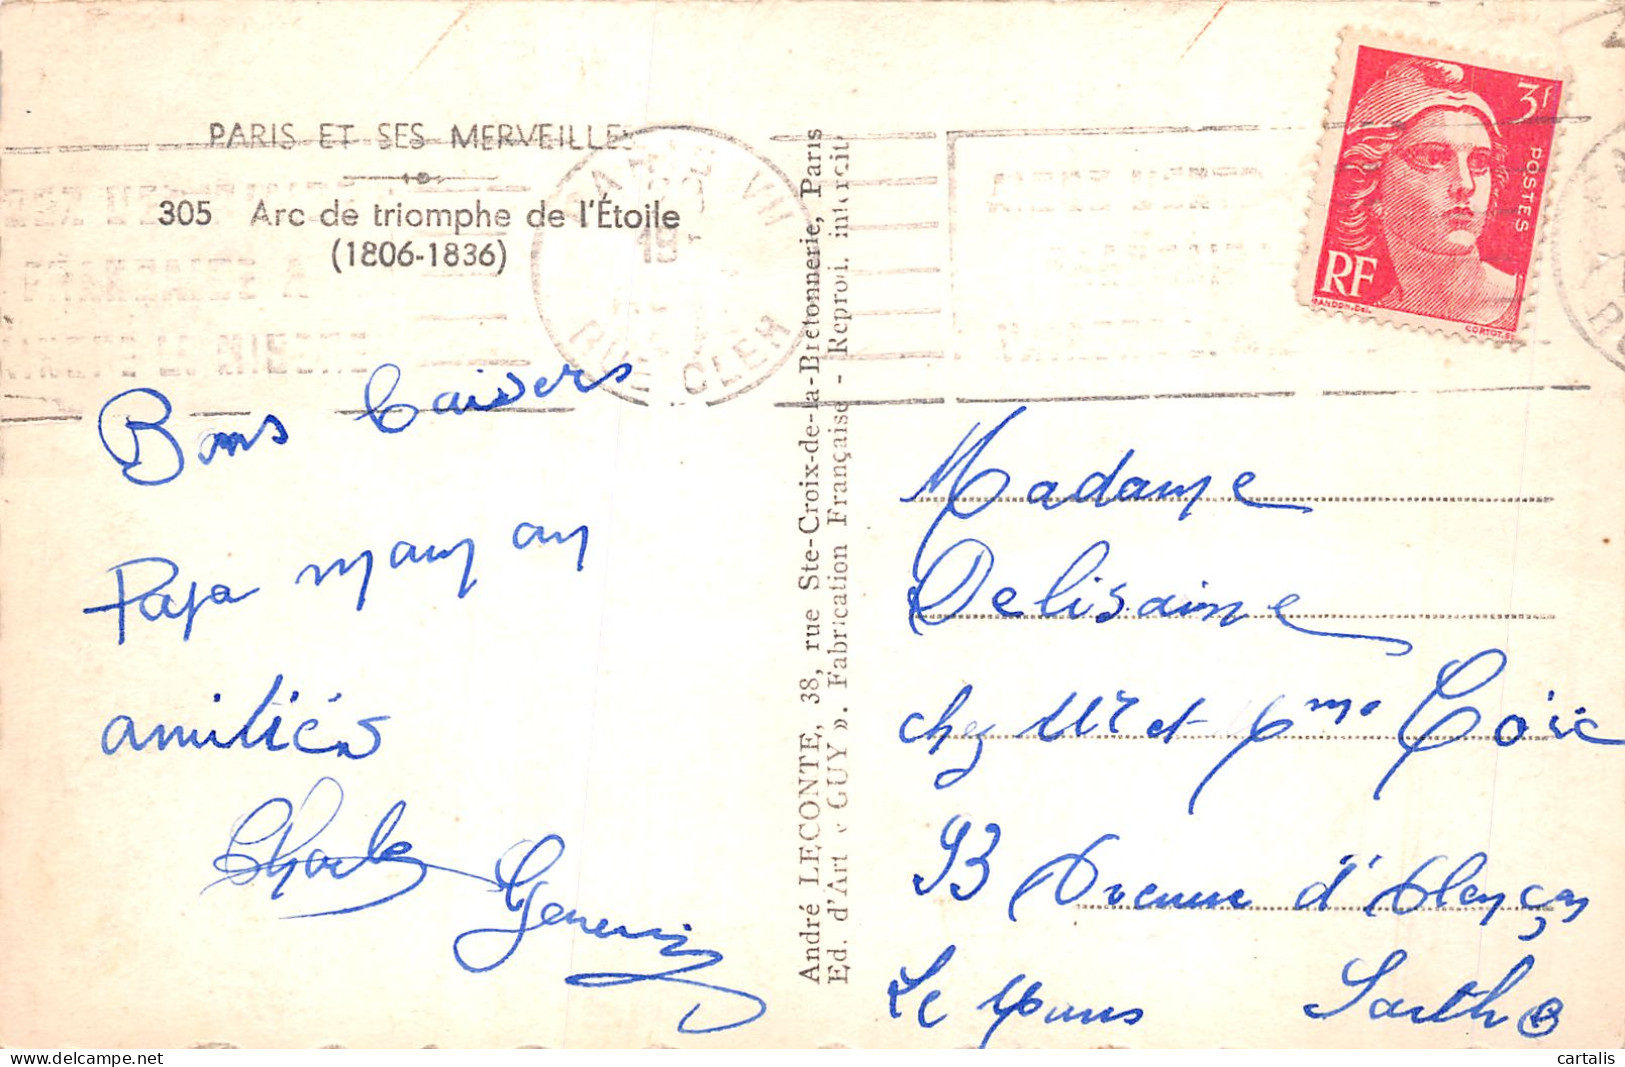 PARIS ET SES MERVEILLES
305 Arc de triomphe de l'Étoile
(1806-1836)
PARIS VII
19
RUE CLER
3f
POSTES
RF
GANDON-Del.
CORTOT.SC
André LECONTE, 38, rue Ste-Croix-de-la-Bretonnerie, Paris
Ed. d'Art « GUY ». Fabrication Française - Reprod. interdit
Bons baisers
Papa maman
amitiés
Charles
Geneviève
Madame
Delisaine
chez Mr et Mme
93 Avenue d'Alençon
Le Mans Sarthe
cartalis
www.delcampe.net